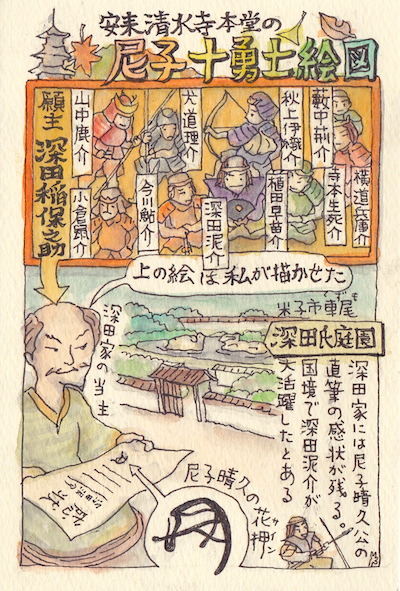 安来清水寺本堂の
尼子十勇士絵図
願主 深田稲保之助
藪中荊介
横道兵庫介
寺本生死介
植田早苗介
犬道理介
深田泥介
今川鮎介
山中鹿介
小倉鼠介
上の絵は私が描かせた
米子市車尾
くずも
深田氏庭園
深田家の当主
深田家には尼子晴久公の
直筆の感状が残る。
国境で深田泥介が
大活躍したとある
感状
尼子晴久の
花押
サイン